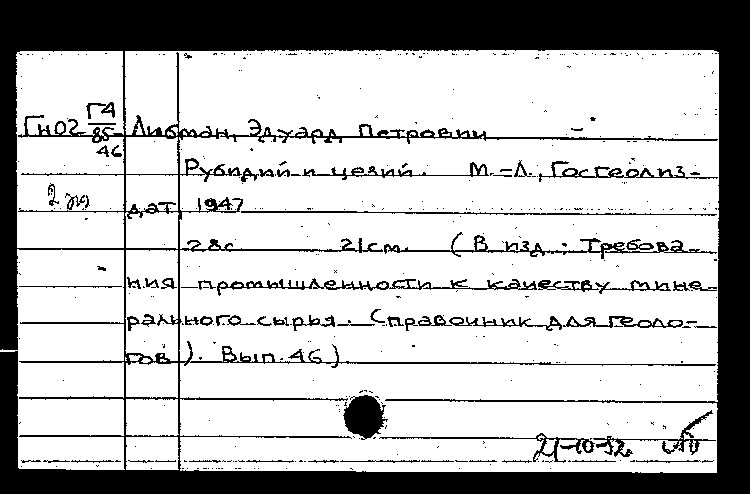 ГД
Гн02 85- Либман, Эдуард Петрович
46
Рубидий и цезий. М.-Л., Госгеолиз-
2 экз
дат, 1947
28с 21см. (В изд.: Требова-
ния промышленности к качеству мине-
рального сырья. (Справочник для геоло-
гов). Вып. 46)
21-10-52.